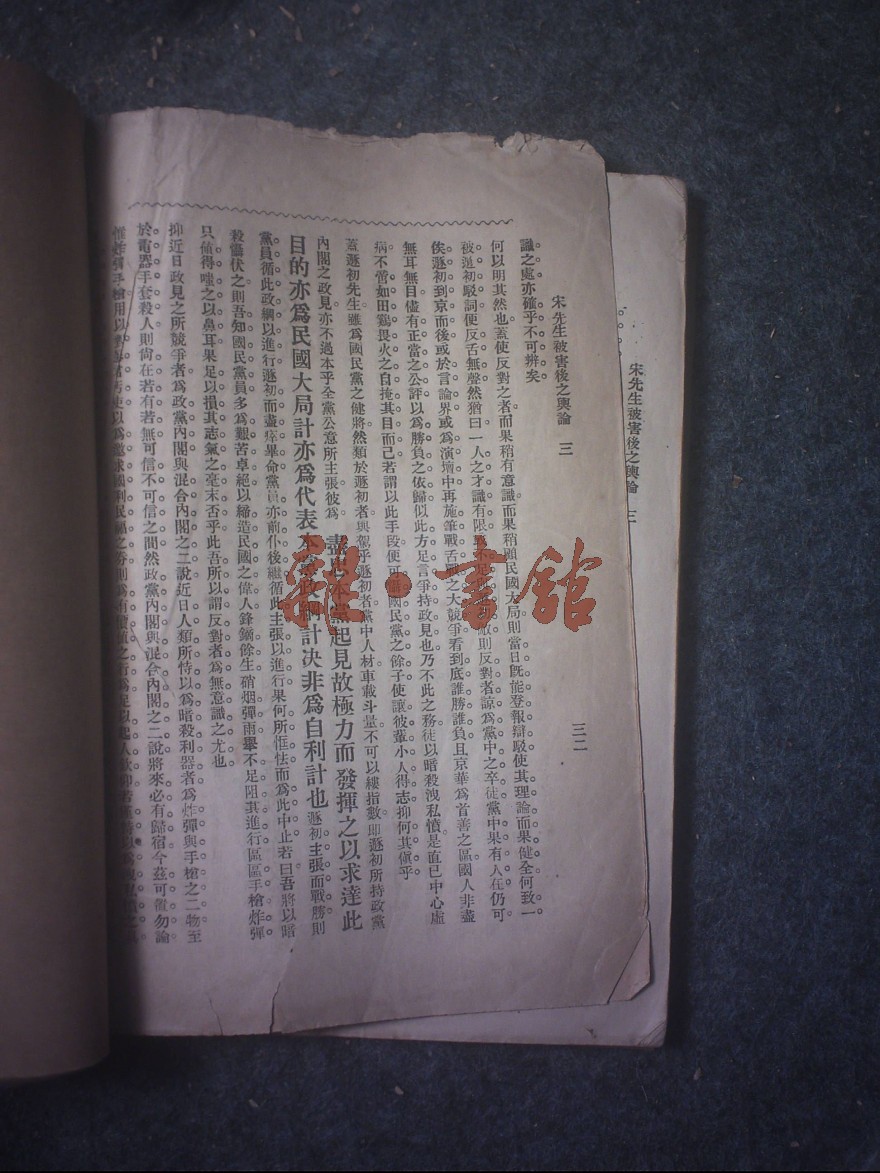 宋先生被害後之輿論 三
宋先生被害後之輿論 三 三二
識之處亦確乎不可辨矣
何以明其然也蓋使反對之者而果稍有意識而果稍顧民國大局則當日既能登報辯駁使其理論而果健全何致一
被遯初駁詞便反舌無聲然猶曰一人之才識有限則反對者諒為黨中之卒徒黨中果有人在仍可
俟遯初到京而後或於言論界或為演壇中再施筆戰舌戰之大競爭看到底誰勝誰負且京華為首善之區國人非盡
無耳無目儘有正當之公評以為勝負之依歸似此方足言爭持政見也乃不此之務徒以暗殺洩私憤是直已中心虛
病不啻如田鷄畏火之自掩其目而已若謂以此手段便可國民黨之餘子使讓彼輩小人得志抑何其傎乎
蓋遯初先生雖為國民黨之健將然類於遯初者與駕乎遯初者黨中人材車載斗量不可以縷指數即遯初所持政黨
內閣之政見亦不過本乎全黨公意所主張彼為盡忠本黨起見故極力而發揮之以求達此
目的亦為民國大局計亦為代表本黨政綱計決非為自利計也遯初主張而戰勝則
黨員循此政綱以進行遯初而盡瘁畢命黨員亦前仆後繼循此主張以進行果何所恇怯而為此中止若曰吾將以暗
殺懾伏之則吾知國民黨員多為艱苦卓絕以締造民國之偉人鋒鏑餘生硝烟彈雨舉不足阻其進行區區手槍炸彈
只値得嗤之以鼻耳果足以損其志氣之毫末否乎此吾所以謂反對者為無意識之尤也
抑近日政見之所競爭者為政黨內閣與混合內閣之二說近日人類所恃以為暗殺利器者為炸彈與手槍之二物至
於電器手套殺人則尙在若有若無可信不可信之間然政黨內閣與混合內閣之二說將來必有歸宿今茲可置勿論
惟炸彈手槍用以